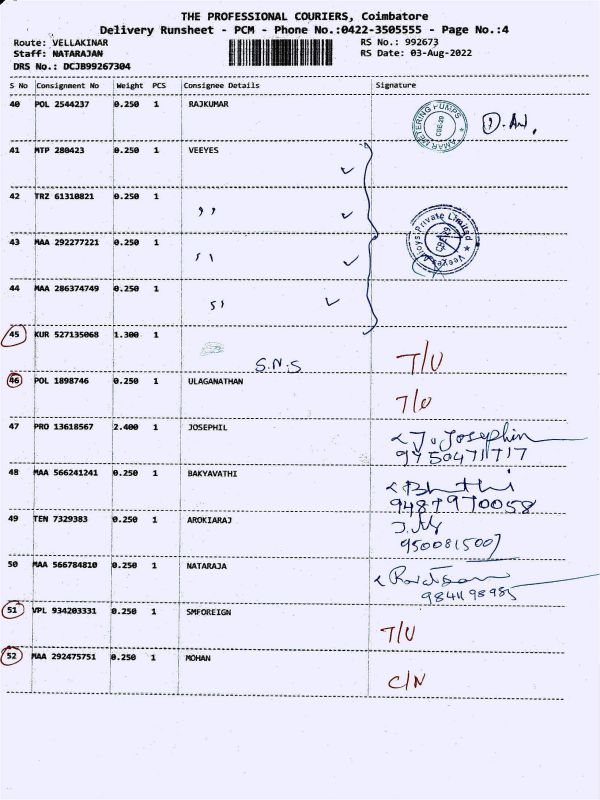 THE PROFESSIONAL COURIERS, Coimbatore
Delivery Runsheet - PCM - Phone No.:0422-3505555 - Page No.:4
Route: VELLAKINAR RS No.: 992673
Staff: NATARAJAN RS Date: 03-Aug-2022
DRS No.: DCJB99267304
S No Consignment No Weight PCS Consignee Details Signature
40 POL 2544237 0.250 1 RAJKUMAR
AMAR METERING PUMPS
CBE-29
41 MTP 280423 0.250 1 VEEYES ✓
42 TRZ 61310821 0.250 1 ,, ✓
Veeyes Alloys Private Limited
43 MAA 292277221 0.250 1 ,, ✓
44 MAA 286374749 0.250 1 ,, ✓
45 KUR 527135068 1.300 1
S.N.S T/U
46 POL 1898746 0.250 1 ULAGANATHAN
T/U
47 PRO 13618567 2.400 1 JOSEPHIL
J. Josephin
9750471717
48 MAA 566241241 0.250 1 BAKYAVATHI
9487970058
49 TEN 7329383 0.250 1 AROKIARAJ
9500815007
50 MAA 566784810 0.250 1 NATARAJA
51 VPL 934203331 0.250 1 SMFOREIGN
T/U
52 MAA 292475751 0.250 1 MOHAN
C/N